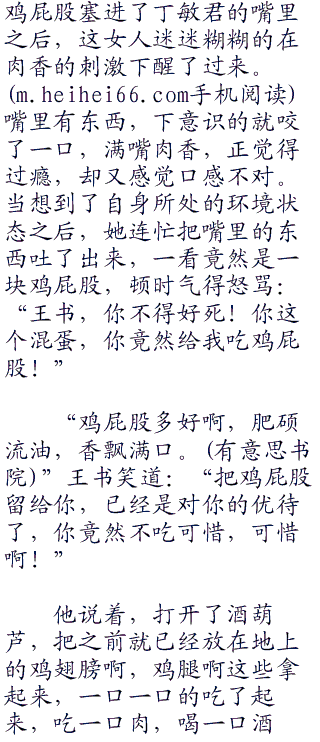 鸡屁股塞进了丁敏君的嘴里
之后，这女人迷迷糊糊的在
肉香的刺激下醒了过来。
(m.heihei66.com手机阅读)
嘴里有东西，下意识的就咬
了一口，满嘴肉香，正觉得
过瘾，却又感觉口感不对。
当想到了自身所处的环境状
态之后，她连忙把嘴里的东
西吐了出来，一看竟然是一
块鸡屁股，顿时气得怒骂：
“王书，你不得好死！你这
个混蛋，你竟然给我吃鸡屁
股！”
“鸡屁股多好啊，肥硕
流油，香飘满口。(有意思书
院)”王书笑道：“把鸡屁股
留给你，已经是对你的优待
了，你竟然不吃可惜，可惜
啊！”
他说着，打开了酒葫
芦，把之前就已经放在地上
的鸡翅膀啊，鸡腿啊这些拿
起来，一口一口的吃了起
来，吃一口肉，喝一口酒